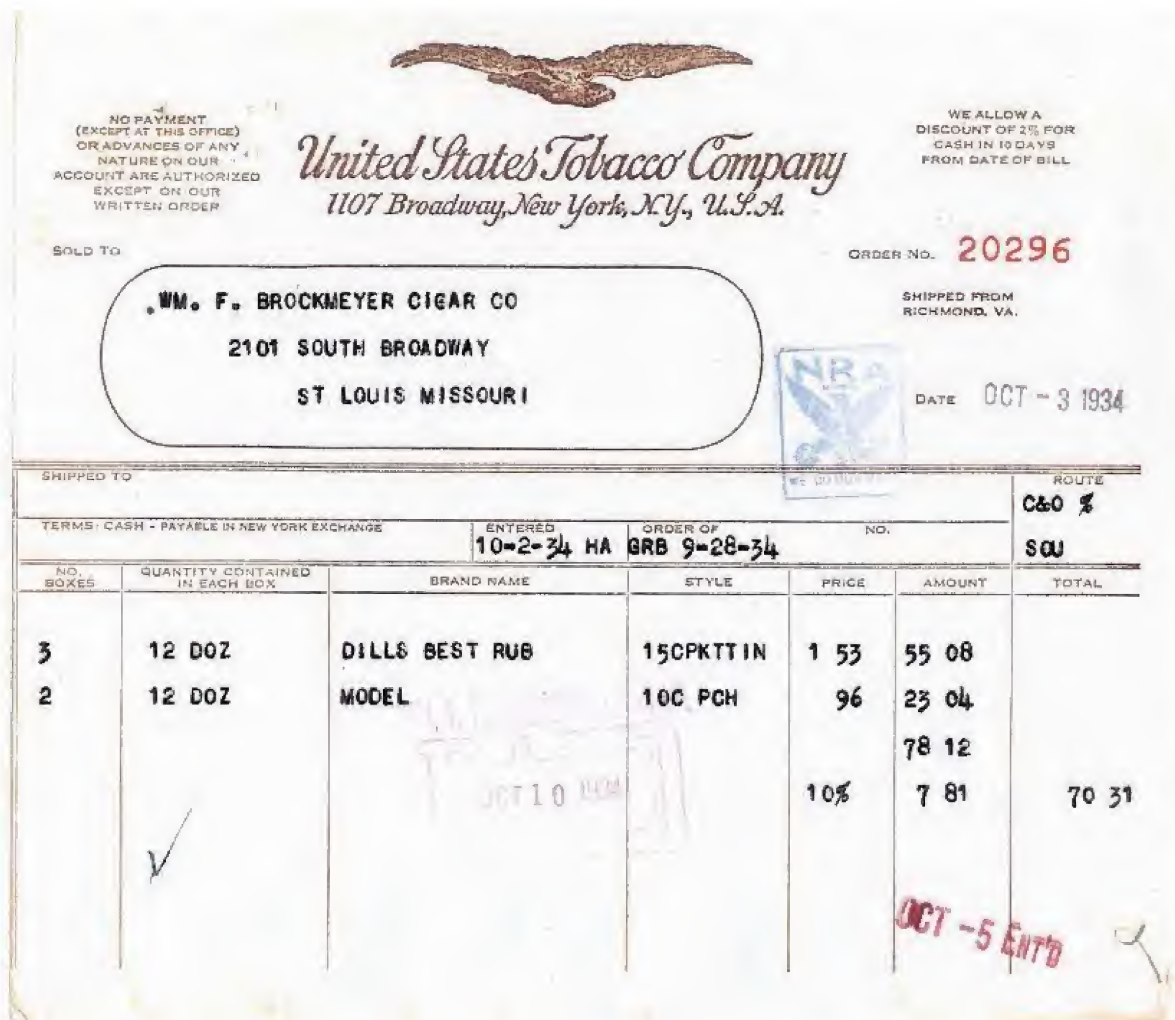 NO PAYMENT
(EXCEPT AT THIS OFFICE)
OR ADVANCES OF ANY
NATURE ON OUR
ACCOUNT ARE AUTHORIZED
EXCEPT ON OUR
WRITTEN ORDER
United States Tobacco Company
1107 Broadway, New York, N.Y., U.S.A.
WE ALLOW A
DISCOUNT OF 2% FOR
CASH IN 10 DAYS
FROM DATE OF BILL
SOLD TO
ORDER NO. 20296
WM. F. BROCKMEYER CIGAR CO
2101 SOUTH BROADWAY
ST LOUIS MISSOURI
SHIPPED FROM
RICHMOND, VA.
NRA
WE DO OUR
DATE OCT - 3 1934
SHIPPED TO
ROUTE
C&O %
SOU
TERMS: CASH - PAYABLE IN NEW YORK EXCHANGE
ENTERED
10-2-34 HA
ORDER OF
GRB 9-28-34
NO.
NO. BOXES QUANTITY CONTAINED IN EACH BOX BRAND NAME STYLE PRICE AMOUNT TOTAL
3 12 DOZ DILLS BEST RUB 15CPKTTIN 1 53 55 08
2 12 DOZ MODEL 10C PCH 96 23 04
78 12
10% 7 81 70 31
OCT 10 1934
OCT -5 ENT'D